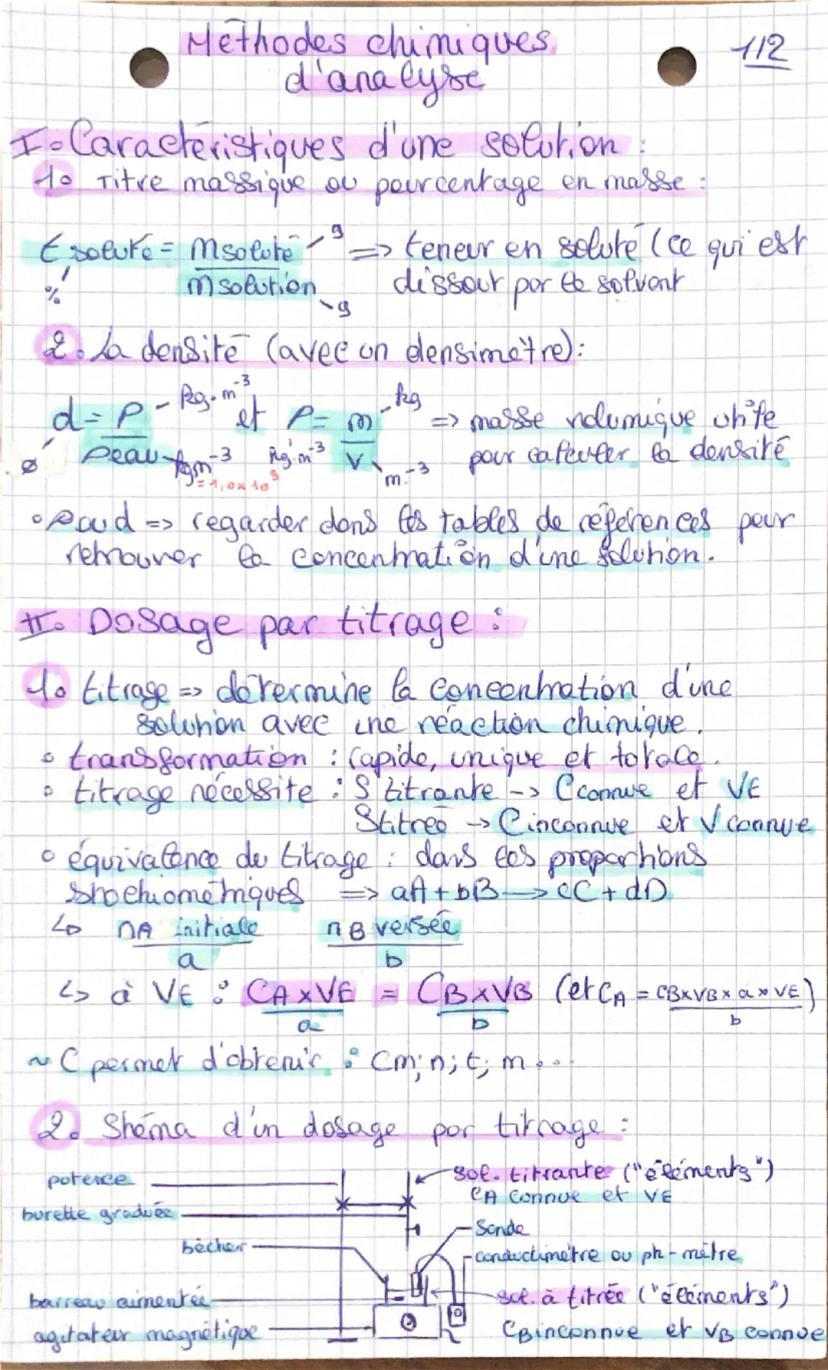 Méthodes chimiques
d'analyse
1/2
I. Caractéristiques d'une solution :
1. Titre massique ou pourcentage en masse :
t soluté = m soluté / m solution => teneur en soluté (ce qui est
% g g dissout par le solvant
2. La densité (avec un densimètre) :
d = ρ / ρeau et ρ = m / V => masse volumique utile
ø kg.m⁻³ kgm⁻³ =1,0×10³ kg.m⁻³ kg m.⁻³ pour calculer la densité
• ρ ou d => regarder dans les tables de références pour
retrouver la concentration d'une solution.
II. Dosage par titrage :
1. titrage => détermine la concentration d'une
solution avec une réaction chimique.
• transformation : rapide, unique et totale.
• titrage nécessite : S titrante -> C connue et VE
S titrée -> C inconnue et V connue
• équivalence du titrage : dans les proportions
stochiométriques => aA + bB -> cC + dD
↳ nA initiale / a nB versée / b
↳ à VE : CA x VE / a = CB x VB / b (et CA = CB x VB x a x VE / b)
~ C permet d'obtenir : Cm; n; t; m...
2. Shéma d'un dosage par titrage :
potence
sol. titrante ("éléments")
CA connue et VE
burette graduée
Sonde
bécher
conductimètre ou ph-mètre
barreau aimentée
sol. à titrée ("éléments")
agitateur magnétique
CB inconnue et VB connue